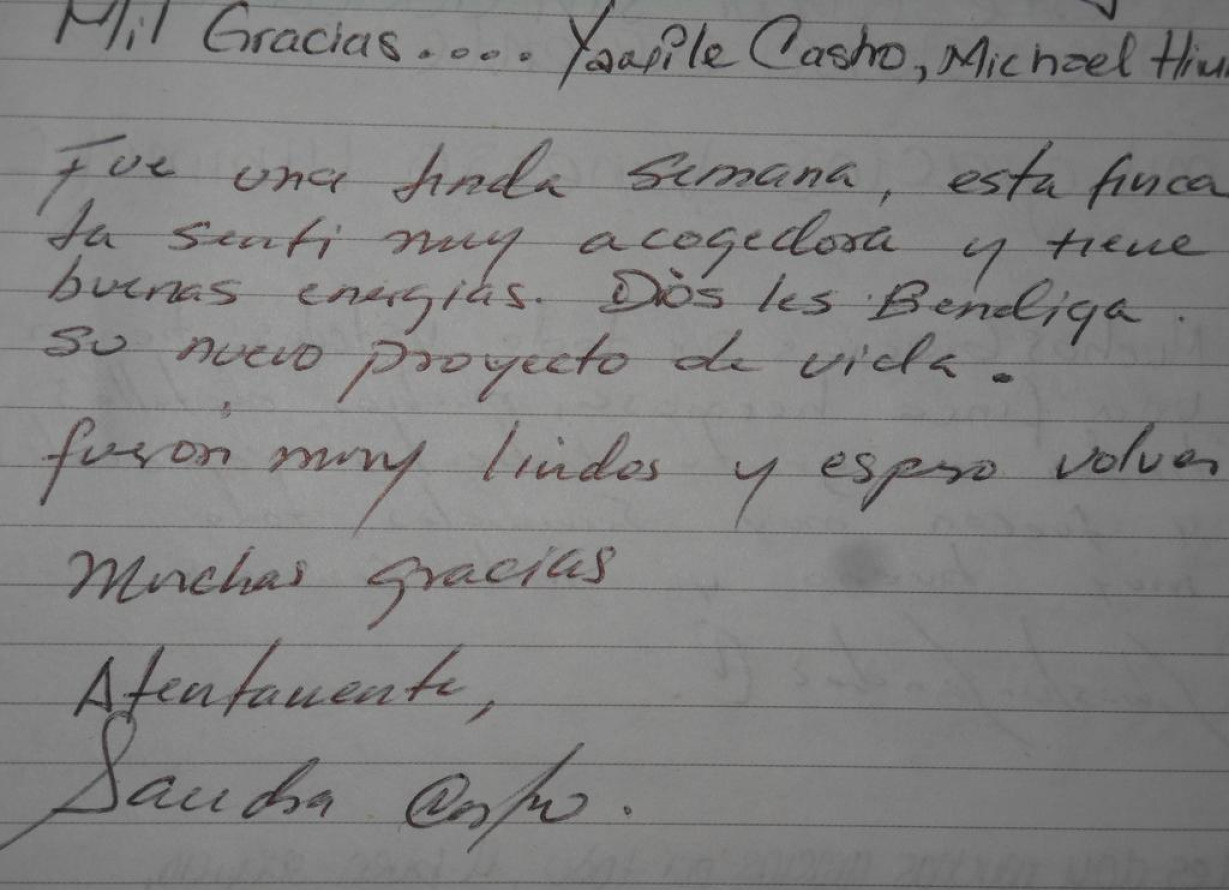 Mil Gracias.... Castro, Michael
Fue una linda semana, esta finca
la senti muy acogedora y tiene
buenas energias. Dios les Bendiga.
su nuevo proyecto de vida.
fueron muy lindos y espero volver
Muchas gracias
Atentamente,
Sandra Castro.